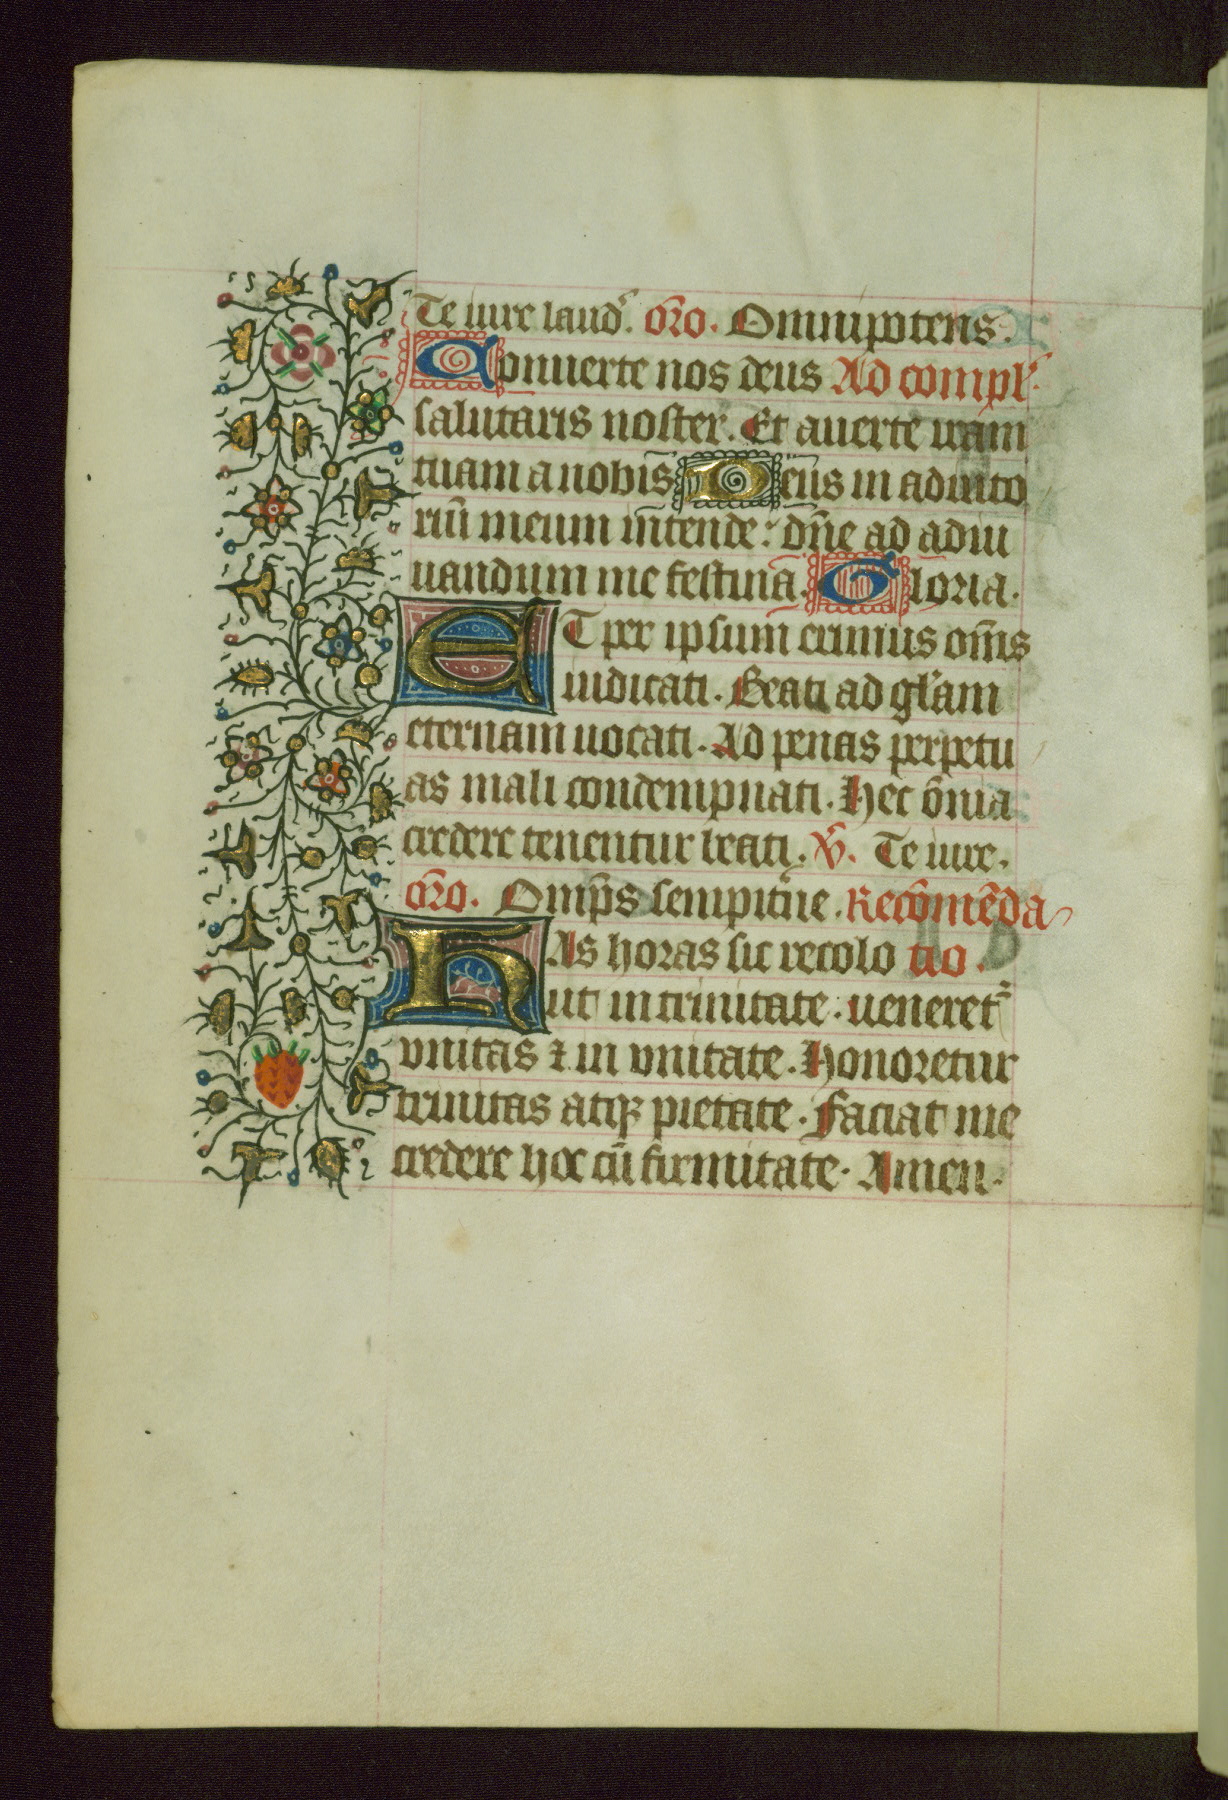 Te iure laud'. oro. Omnipotens.
Conuerte nos deus Ad compl'.
salutaris noster. Et auerte iram
tuam a nobis Deus in adiuto
riū meum intende: dn̄e ad adiu
uandum me festina. Gloria.
ET per ipsum erimus om̄s
iudicati. Beati ad gl'am
eternam uocati. Ad penas perpetu
as mali condempnati. Hec om̄ia
credere tenentur beati. v̄. Te iure.
or̄o. Omp̄s sempit'ne. Recōmēda
HAs horas sic recolo tio.
ut in trinitate: ueneret'
vnitas ⁊ in vnitate. Honoretur
trinitas atqꝫ pietate. Faciat me
credere hoc cū firmitate. Amen.